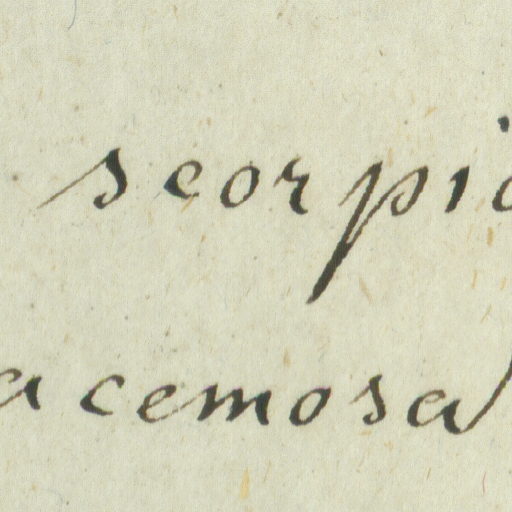 scorpio
acemosa